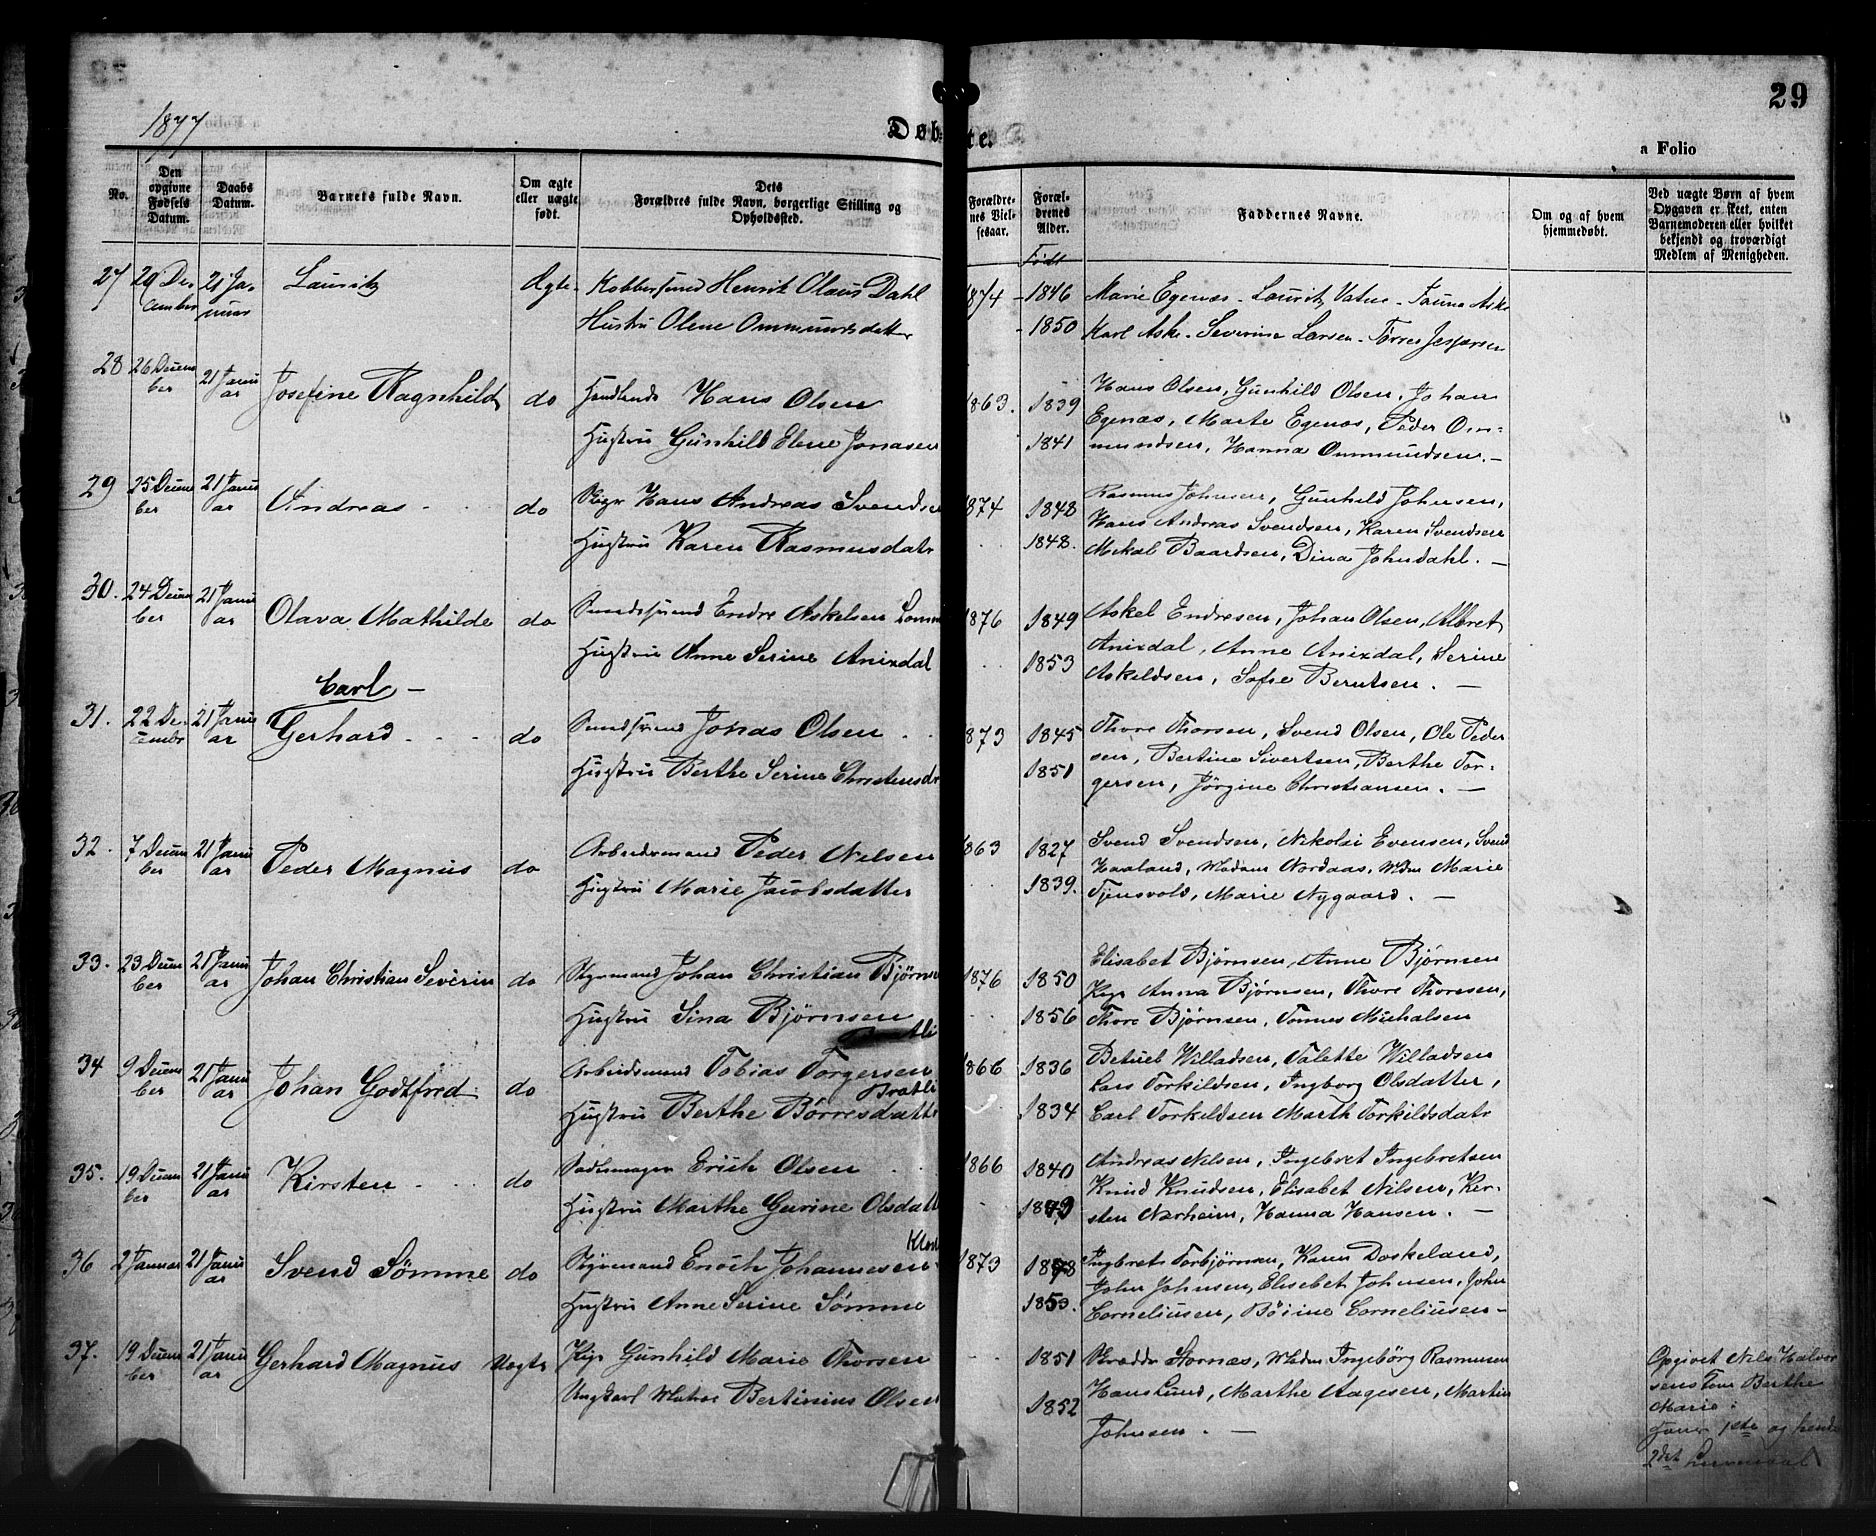 29
1877
Døbte.
a Folio
No.
Den opgivne Fødsels Datum.
Daabs Datum.
Barnets fulde Navn.
Om ægte eller uægte født.
Dets Forældres fulde Navn, borgerlige Stilling og Opholdssted.
Forældrenes Vielsesaar.
Forældrenes Alder.
Født
Faddernes Navne.
Om og af hvem hjemmedøbt.
Ved uægte Børn af hvem Opgaven er skeet, enten Barnemoderen eller hvilket bekjendt og troværdigt Medlem af Menigheden.
27 29 December 21 Januar Lauritz Ægte Kobbersmed Henrik Olaus Dahl 1874 - 1846 Marie Egenæs - Lauritz Vatne -
Hustru Olene Ommundsdatter - 1850 Karl Aske - Severine Larsen - Tørres Jespersen
28 26 December 21 Januar Josefine Ragnhild do Hans Olsen 1863. 1839 Hans Olsen, Gunhild Olsen, Johan
Egenæs, Marte Egenæs, Peder Om-
Hustru Gunhild Elene Jonasen 1841 mundsen, Hanna Ommundsen. -
29 25 December 21 Januar Andreas do Hans Andreas Svendsen 1874 1848 Rasmus Johnsen, Gunhild Johnsen,
Hans Andreas Svendsen, Karen Svendsen
Hustru Karen Rasmusdatr 1848. Mikal Baardsen, Dina Johndahl. -
30. 24 December 21 Januar Olava Mathilde do Endre Askelsen 1876 1849 Askel Endresen, Johan Olsen, Albret
Anixdal, Anne Anixdal, Serine
Hustru Anne Serine Anixdal 1853 Askeldsen, Sofie Berntsen. -
Carl -
31. 22 December 21 Januar Gerhard do Jonas Olsen 1873 1845 Thore Thorsen, Svend Olsen, Ole Peder
sen, Bertine Sivertsen, Berthe Tor-
Hustru Berthe Serine Christensdr 1851 gersen, Jørgine Christiansen. -
32. 7 December 21 Januar Peder Magnus do Arbeidsmand Peder Nilsen 1863 1827 Svend Svendsen, Nikolai Evensen, Svend
Haaland, Madam Nordaas, Mdm Marie
Hustru Marie Jacobsdatter 1839. Tjensvold, Marie Nygaard. -
33. 23 December 21 Januar Johan Christian Severin do Styrmand Johan Christian Bjørnsen 1876 1850 Elisabet Bjørnsen, Anne Bjørnsen
Pige Anna Bjørnsen, Thore Thoresen,
Hustru Sina Bjørnsen 1856 Thore Bjørnsen, Tønnes Michalsen
34 9 December 21 Januar Johan Godtfred do Arbeidsmand Tobias Torgersen Bratli 1866 1836 Betuel Willadsen, Talette Willadsen
Lars Torkildsen, Ingborg Olsdatter,
Hustru Berthe Børresdatter 1834 Carl Torkeldsen Marth Torkildsdatr
35. 19 December 21 Januar Kirsten do Sadelmager Erich Olsen 1866 1840 Andreas Nilsen, Ingebret Ingebretsen
Knud Knudsen, Elisabet Nilsen, Ker-
Hustru Marthe Gurine Olsdatt 1843 sten Norheim, Hanna Hansen. -
36 2 Januar 21 Januar Svend Sømme do Styrmand Enoch Johannesen 1873 1848 Ingbret Torbjørnsen, Karen Doskeland,
John Johnsen, Elisebet Johnsen, John
Hustru Anne Serine Sømme 1853. Corneliusen, Corneliusen -
37. 19 December 21 Januar Gerhard Magnus Uægte Pige Gunhild Marie Thorsen 1851 Skrædder Stornæs, Madm Ingebørg Rasmusen
Ungkarl Matros Bertinius Olsen 1852 Hans Lund, Marthe Aagesen, Martin
Johnsen. -
Opgivet Nils Halvor
sens Berthe
Marie.
1ste og hendes
2det Leiermaal